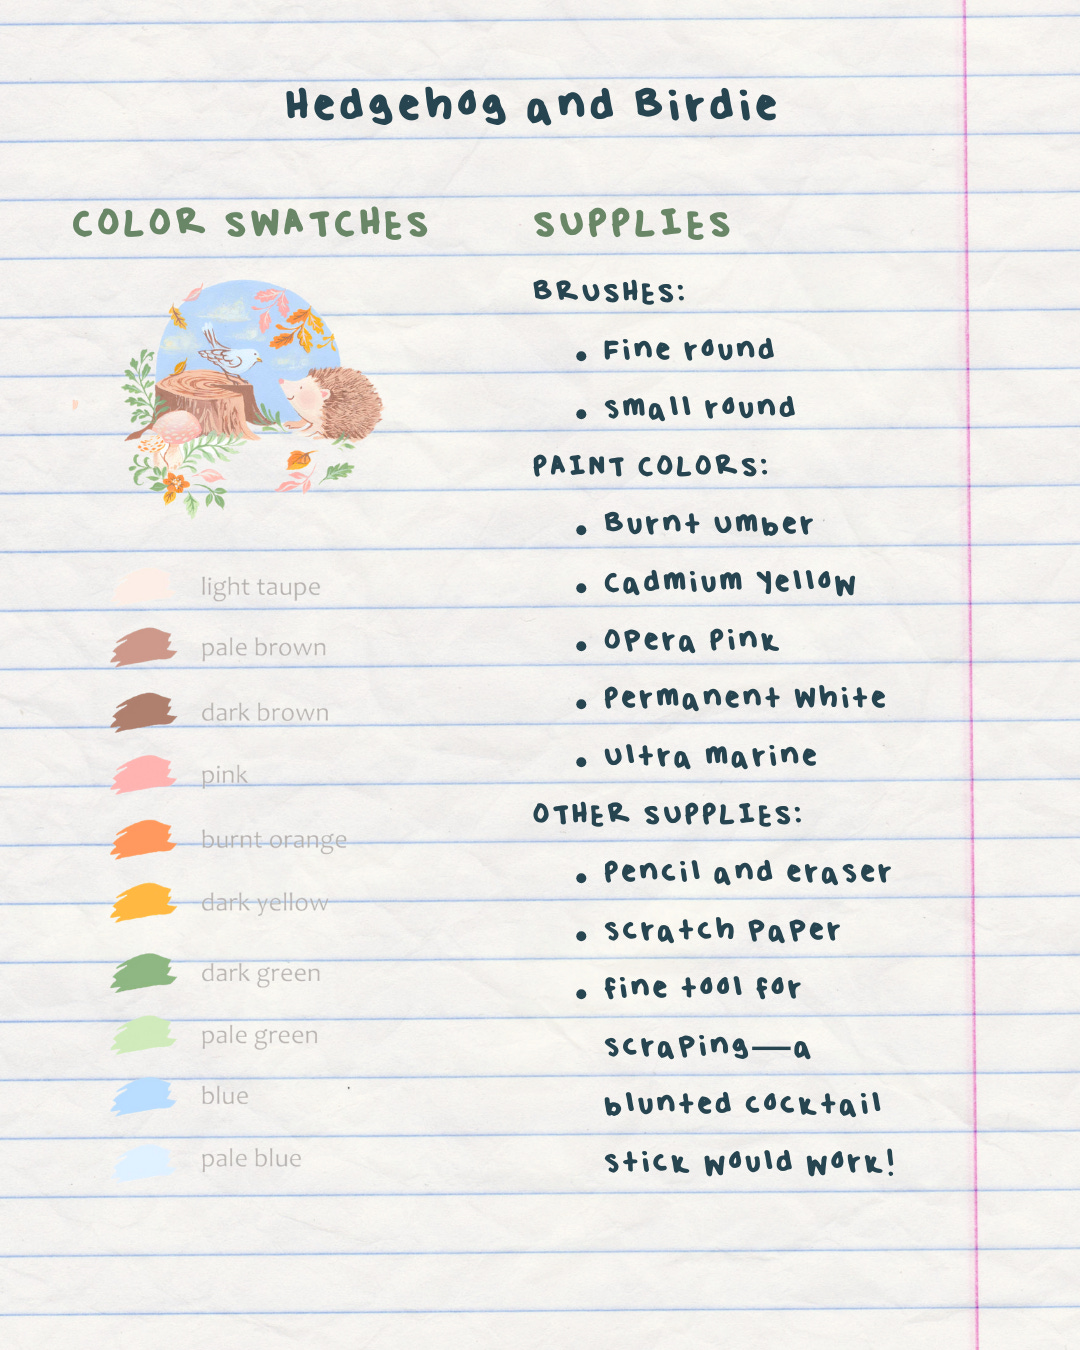 Hedgehog and Birdie
COLOR SWATCHES
light taupe
pale brown
dark brown
pink
burnt orange
dark yellow
dark green
pale green
blue
pale blue
SUPPLIES
BRUSHES:
• Fine round
• small round
PAINT COLORS:
• Burnt umber
• Cadmium Yellow
• Opera Pink
• Permanent White
• Ultra marine
OTHER SUPPLIES:
• Pencil and eraser
• scratch paper
• fine tool for
scraping—a
blunted cocktail
stick would work!